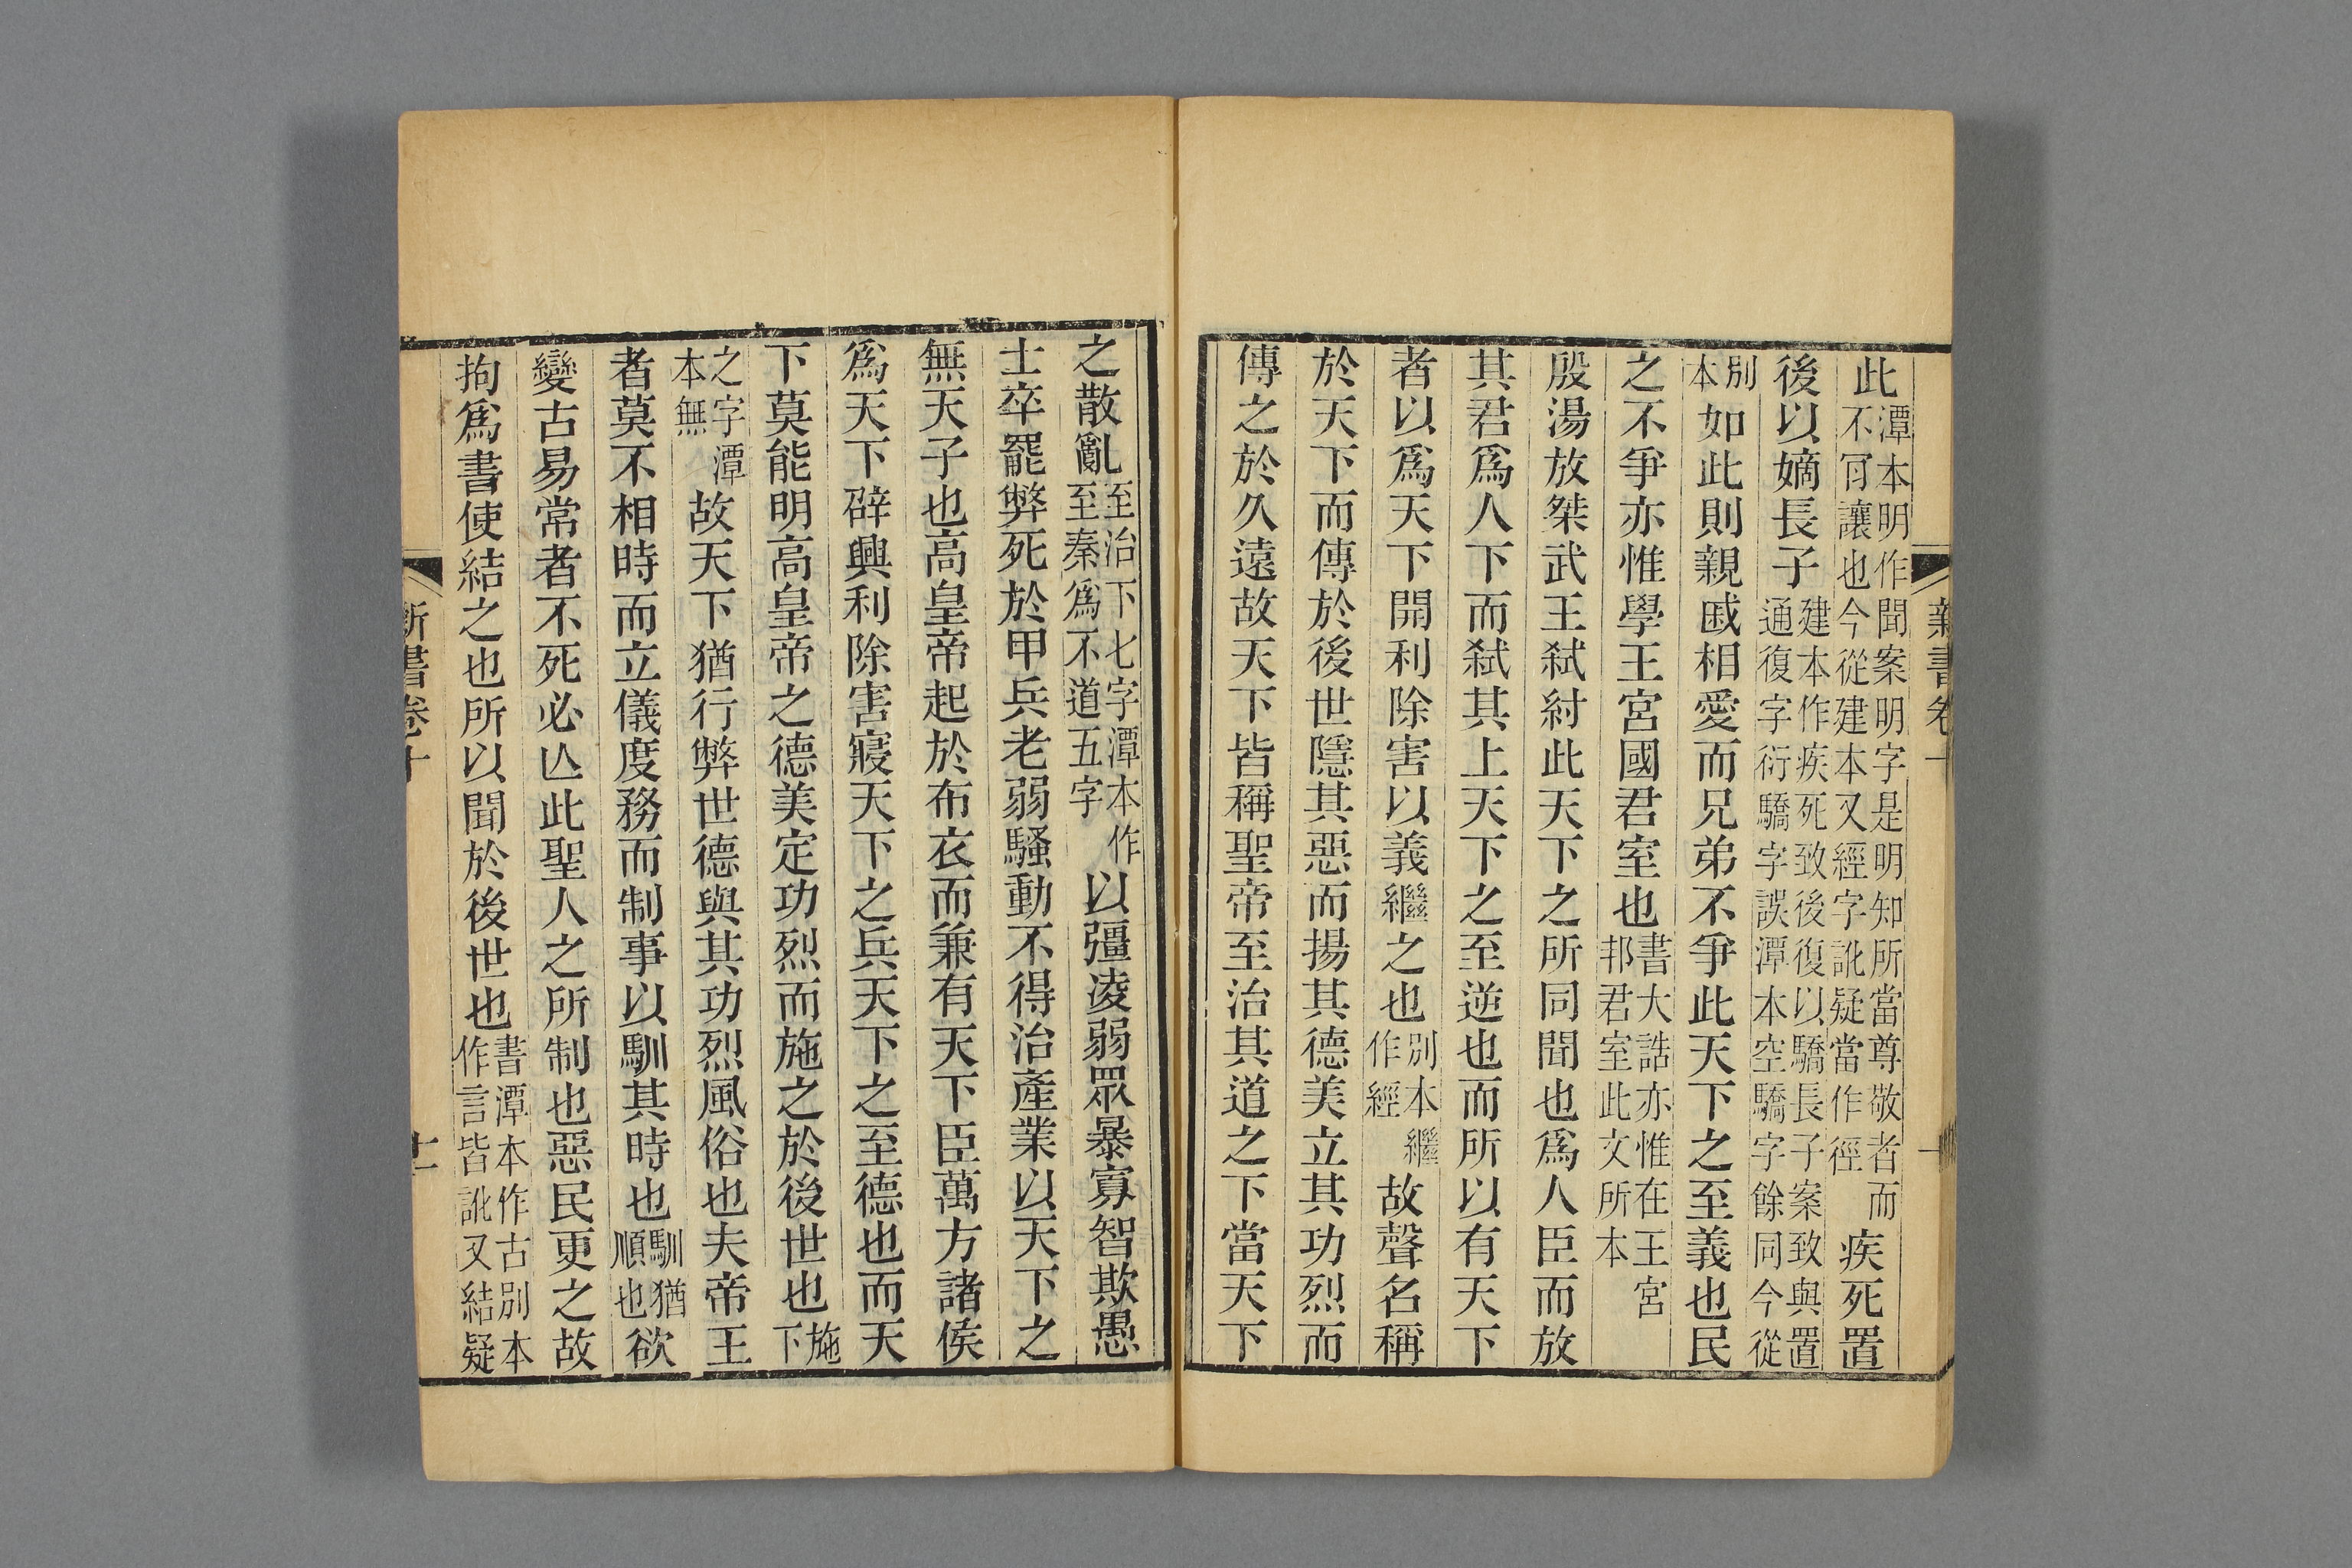 此潭本明作聞案明字是明知所當尊敬者而不肎讓也今從建本又經字訛疑當作徑疾死置
後以嫡長子建本作疾死致後復以驕長子案致與置通復字衍驕字誤潭本空驕字餘同今從
別本如此則親戚相愛而兄弟不爭此天下之至義也民
之不爭亦惟學王宮國君室也書大誥亦惟在王宮邦君室此文所本
殷湯放桀武王弑紂此天下之所同聞也爲人臣而放
其君爲人下而弑其上天下之至逆也而所以有天下
者以爲天下開利除害以義繼之也別本繼作經故聲名稱
於天下而傳於後世隱其惡而揚其德美立其功烈而
傳之於久遠故天下皆稱聖帝至治其道之下當天下
之散亂至治下七字潭本作至秦爲不道五字以彊凌弱眾暴寡智欺愚
士卒罷弊死於甲兵老弱騷動不得治產業以天下之
無天子也高皇帝起於布衣而兼有天下臣萬方諸侯
爲天下辟興利除害寢天下之兵天下之至德也而天
下莫能明高皇帝之德美定功烈而施之於後世也施下
之字潭本無故天下猶行弊世德與其功烈風俗也夫帝王
者莫不相時而立儀度務而制事以馴其時也馴猶順也欲
變古易常者不死必亾此聖人之所制也惡民更之故
拘爲書使結之也所以聞於後世也書潭本作古別本作言皆訛又結疑
新書卷十
十一